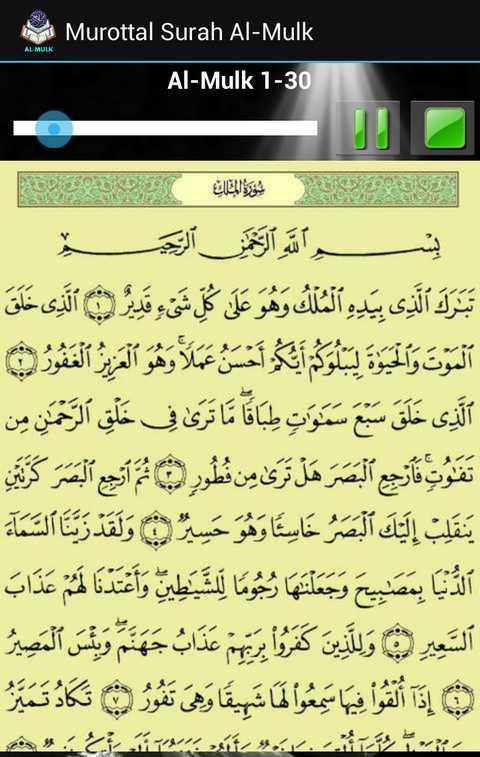 AL-MULK
Murottal Surah Al-Mulk
Al-Mulk 1-30
سُورَةُ المُلْكِ
بِسْمِ اللَّهِ الرَّحْمَٰنِ الرَّحِيمِ
تَبَارَكَ الَّذِي بِيَدِهِ الْمُلْكُ وَهُوَ عَلَىٰ كُلِّ شَيْءٍ قَدِيرٌ ﴿١﴾ الَّذِي خَلَقَ
الْمَوْتَ وَالْحَيَاةَ لِيَبْلُوَكُمْ أَيُّكُمْ أَحْسَنُ عَمَلًا ۚ وَهُوَ الْعَزِيزُ الْغَفُورُ ﴿٢﴾
الَّذِي خَلَقَ سَبْعَ سَمَاوَاتٍ طِبَاقًا ۖ مَّا تَرَىٰ فِي خَلْقِ الرَّحْمَٰنِ مِن
تَفَاوُتٍ ۖ فَارْجِعِ الْبَصَرَ هَلْ تَرَىٰ مِن فُطُورٍ ﴿٣﴾ ثُمَّ ارْجِعِ الْبَصَرَ كَرَّتَيْنِ
يَنقَلِبْ إِلَيْكَ الْبَصَرُ خَاسِئًا وَهُوَ حَسِيرٌ ﴿٤﴾ وَلَقَدْ زَيَّنَّا السَّمَاءَ
الدُّنْيَا بِمَصَابِيحَ وَجَعَلْنَاهَا رُجُومًا لِّلشَّيَاطِينِ ۖ وَأَعْتَدْنَا لَهُمْ عَذَابَ
السَّعِيرِ ﴿٥﴾ وَلِلَّذِينَ كَفَرُوا بِرَبِّهِمْ عَذَابُ جَهَنَّمَ ۖ وَبِئْسَ الْمَصِيرُ
﴿٦﴾ إِذَا أُلْقُوا فِيهَا سَمِعُوا لَهَا شَهِيقًا وَهِيَ تَفُورُ ﴿٧﴾ تَكَادُ تَمَيَّزُ